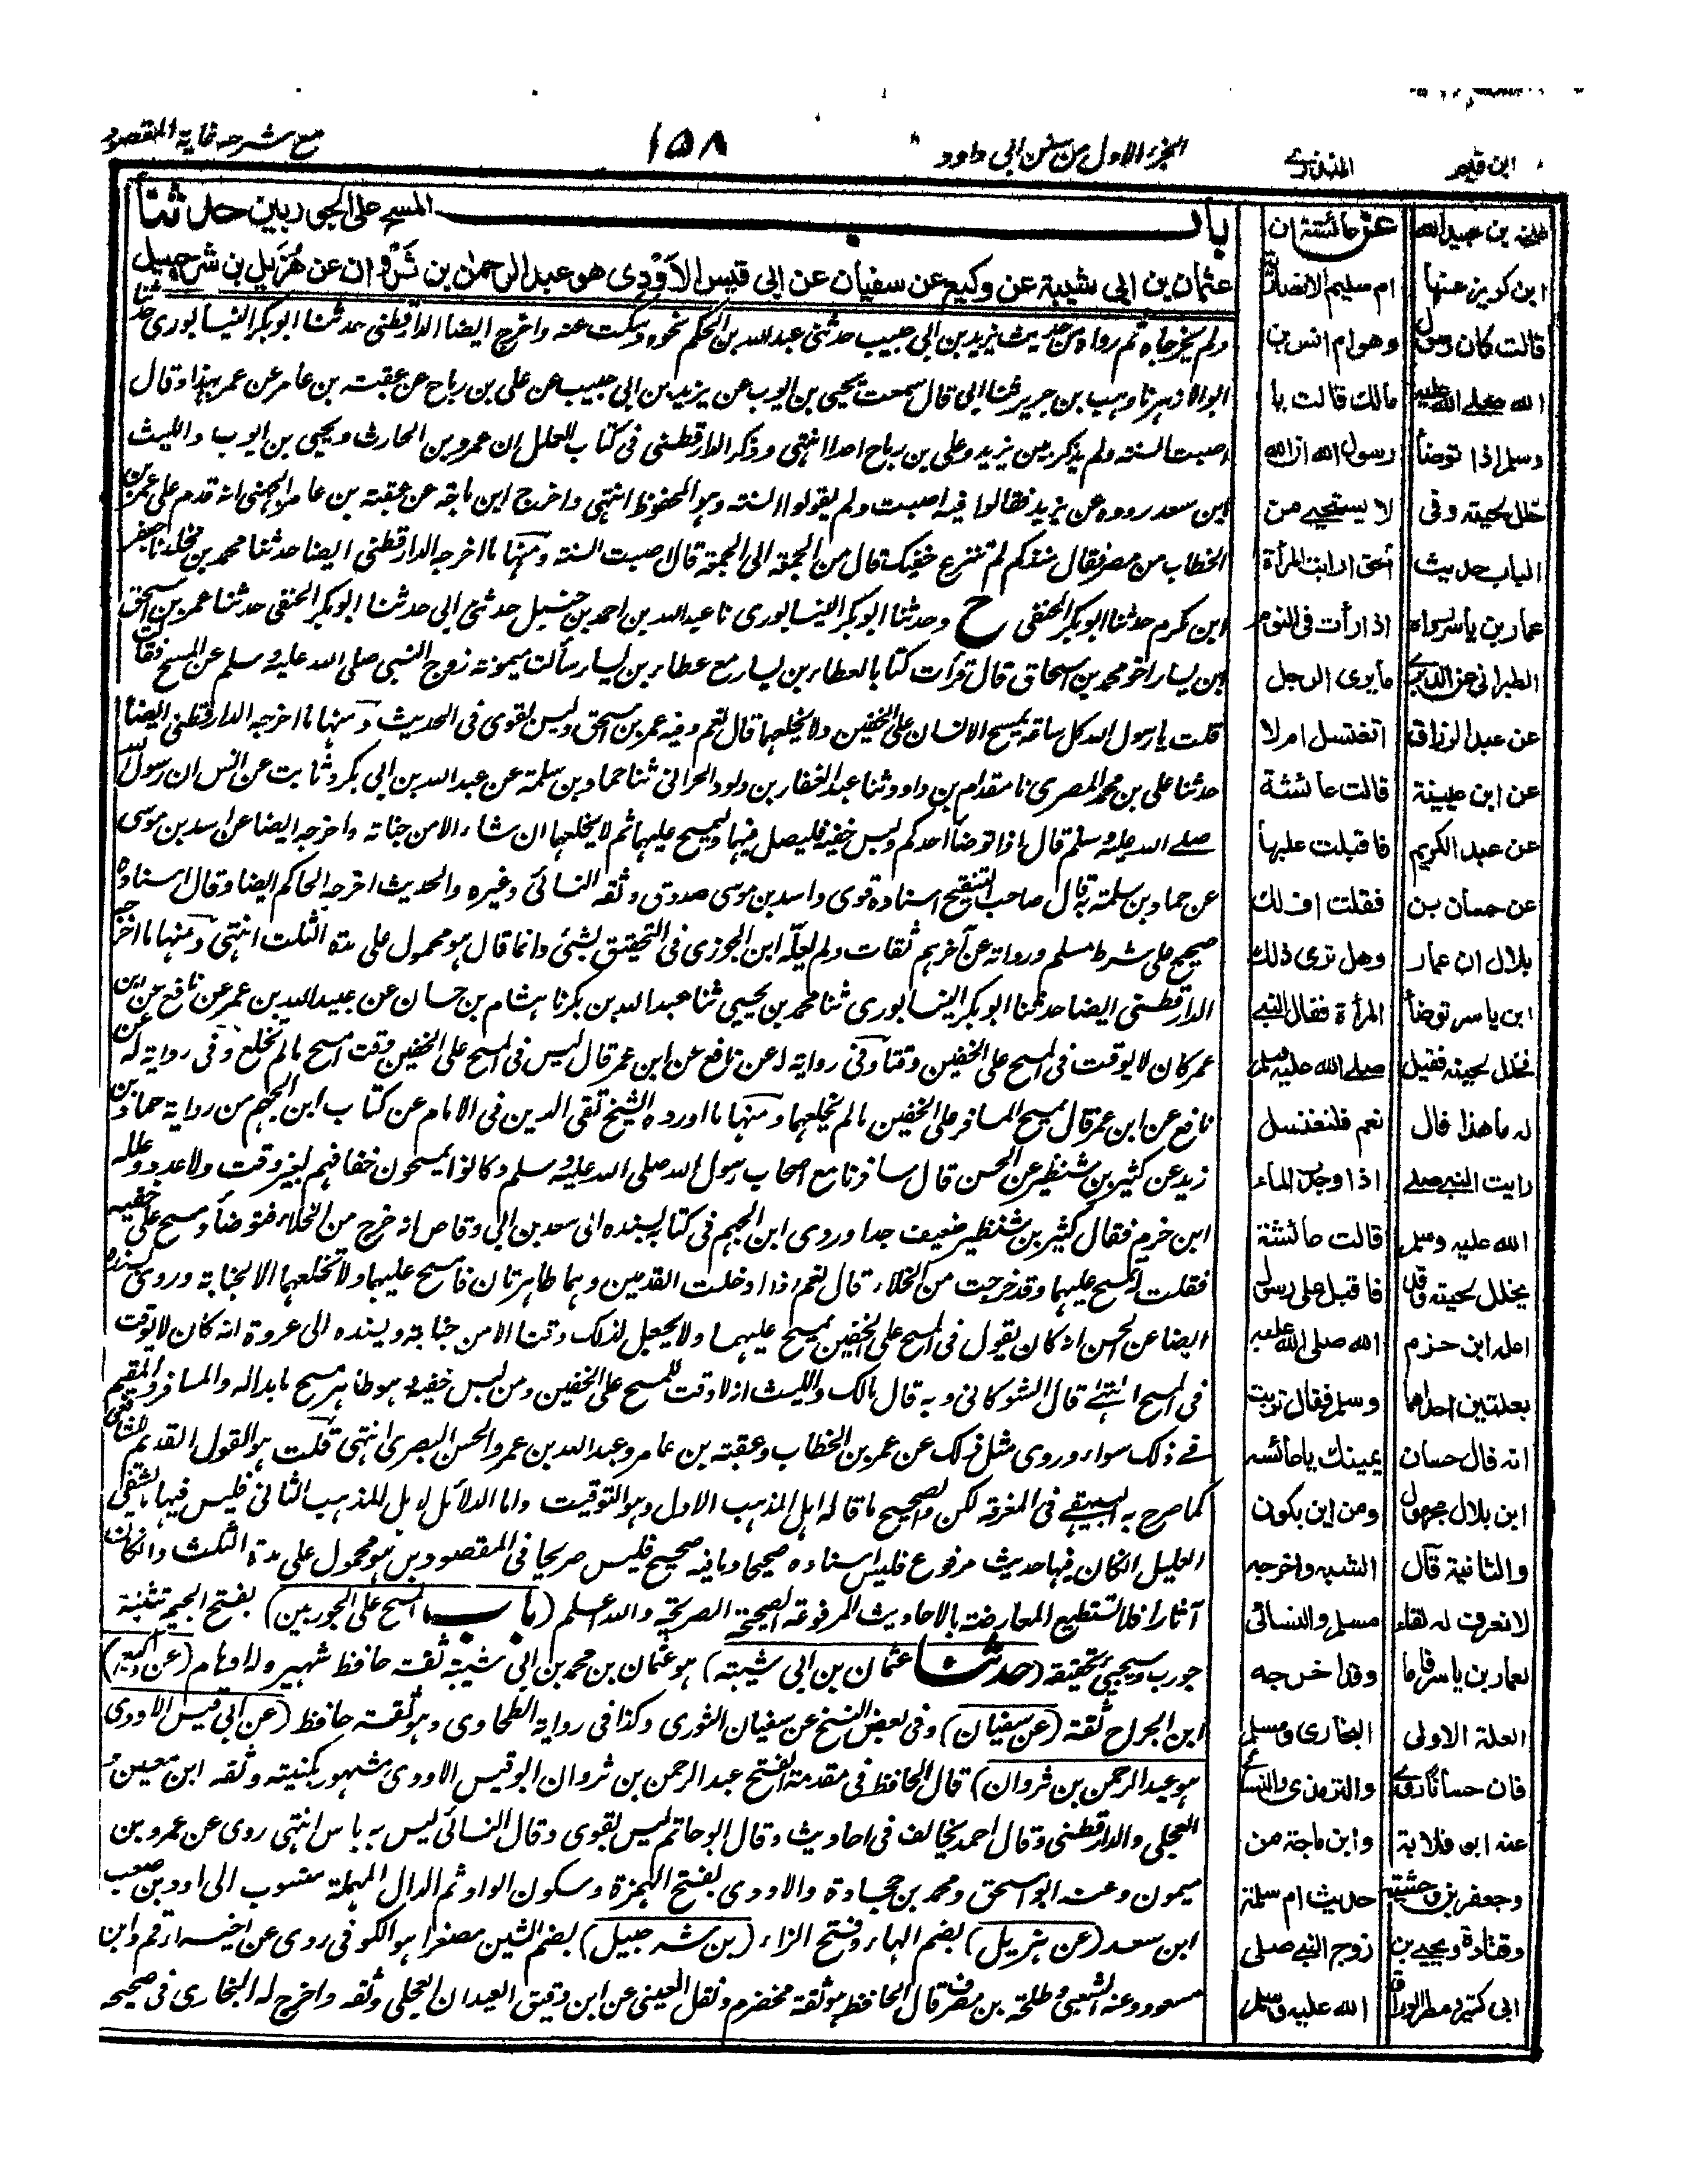 ابن قيم
المنذري
الجزء الاول من سنن ابى داود
١٥٨
مع شرحه غاية المقصود
باب المسح على الجوربين حدثنا
عثمان بن ابى شيبة عن وكيع عن سفيان عن ابى قيس الاَوْدِى هو عبد الرحمن بن ثَرْوان عن هُزَيل بن شرحبيل
ولم يخرجاه ثم رواه من حديث يزيد بن ابي حبيب حدثنى عبد الله بن الحكم نحوه وسكت عنه واخرج ايضا الدارقطنى حدثنا ابو بكر النيسابورى حدثنا
ابو الازهر نا وهب بن جرير ثنا ابى قال سمعت يحيى بن ايوب عن يزيد بن ابى حبيب عن على بن رباح عن عقبة بن عامر عن عمر بهذا وقال
اصبت السنة ولم يذكر بين يزيد وعلى بن رباح احدا انتهى وذكر الدارقطنى فى كتاب العلل ان عمرو بن الحارث ويحيى بن ايوب والليث
ابن سعد رووه عن يزيد فقالوا فيه اصبت ولم يقولوا السنة وهو المحفوظ انتهى واخرج ابن ماجة عن عقبة بن عامر الجهنى انه قدم على عمر بن
الخطاب من مصر فقال منذكم لم تنزع خفيك قال من الجمعة الى الجمعة قال اصبت السنة ومنها ما اخرجه الدارقطنى ايضا حدثنا محمد بن مخلد نا جعفر
ابن مكرم حدثنا ابو بكر الحنفى ح وحدثنا ابو بكر النيسابورى نا عبد الله بن احمد بن حنبل حدثنى ابى حدثنا ابو بكر الحنفى حدثنا عمر بن اسحق
بن يسار اخو محمد بن اسحاق قال قرأت كتابا لعطاء بن يسار مع عطاء بن يسار سألت ميمونة زوج النبى صلى الله عليه وسلم عن المسح فقالت
قلت يا رسول الله كل ساعة يمسح الانسان على الخفين ولا يخلعهما قال نعم وفيه عمر بن اسحق وليس بقوى فى الحديث ومنها ما اخرجه الدارقطنى ايضا
حدثنا على بن محمد المصرى نا مقدام بن داود ثنا عبد الغفار بن داود الحرانى ثنا حماد بن سلمة عن عبد الله بن ابى بكر وثابت عن انس ان رسول الله
صلى الله عليه وسلم قال اذا توضأ احدكم ولبس خفيه فليصل فيهما وليمسح عليهما ثم لا يخلعهما ان شاء الا من جنابة واخرجه ايضا عن اسد بن موسى
عن حماد بن سلمة به قال صاحب التنقيح اسناده قوى واسد بن موسى صدوق وثقه النسائى وغيره والحديث اخرجه الحاكم ايضا وقال اسناده
صحيح على شرط مسلم ورواته عن آخرهم ثقات ولم يعلّه ابن الجوزى فى التحقيق بشئ وانما قال هو محمول على مدة الثلث انتهى ومنها ما اخرجه
الدارقطنى ايضا حدثنا ابو بكر النيسابورى ثنا محمد بن يحيى ثنا عبد الله بن بكر نا هشام بن حسان عن عبيد الله بن عمر عن نافع عن ابن
عمر كان لا يوقت فى المسح على الخفين وقتا وفى رواية له عن نافع عن ابن عمر قال ليس فى المسح على الخفين وقت امسح ما لم تخلع وفى رواية له عن
نافع عن ابن عمر قال يمسح المسافر على الخفين ما لم يخلعهما ومنها ما اورده الشيخ تقى الدين فى الامام عن كتاب ابن الجهم من رواية حماد بن
زيد عن كثير بن شنظير عن الحسن قال سافرنا مع اصحاب رسول الله صلى الله عليه وسلم وكانوا يمسحون خفافهم بغير وقت ولا عدد وعلله
ابن حزم فقال كثير بن شنظير ضعيف جدا وروى ابن الجهم فى كتابه بسنده الى سعد بن ابى وقاص انه خرج من الخلاء فتوضأ ومسح على خفيه
فقلت تمسح عليهما وقد خرجت من الخلاء قال نعم اذا ادخلت القدمين وهما طاهرتان فامسح عليهما ولا تخلعهما الا لجنابة وروى بسنده
ايضا عن الحسن انه كان يقول فى المسح على الخفين يمسح عليهما ولا يجعل لذلك وقتا الا من جنابة وبسنده الى عروة انه كان لا يوقت
فى المسح انتهى قال الشوكانى وبه قال مالك والليث انه لا وقت للمسح على الخفين ومن لبس خفيه وهو طاهر مسح ما بدا له والمسافر والمقيم
فى ذلك سواء وروى مثل ذلك عن عمر بن الخطاب وعقبة بن عامر وعبد الله بن عمر والحسن البصرى انتهى قلت هو القول القديم للشافعى
كما صرح به البيهقى فى المعرفة لكن والصحيح ما قاله اهل المذهب الاول وهو التوقيت واما الدلائل لاهل المذهب الثانى فليس فيها ما يشفى
العليل ان كان فيها حديث مرفوع فليس اسناده صحيحا وما فيه صحيح فليس صريحا فى المقصود بل هو محمول على مدة الثلث وان كان
آثارا فلا تستطيع المعارضة بالاحاديث المرفوعة الصحيحة الصريحة والله اعلم (باب المسح على الجوربين) بفتح الجيم تثنية
جورب وسيجيئ تحقيقه (حدثنا عثمان بن ابى شيبة) هو عثمان بن محمد بن ابى شيبة ثقة حافظ شهير وله اوهام (عن وكيع)
ابن الجراح ثقة (عن سفيان) وفى بعض النسخ عن سفيان الثورى وكذا فى رواية الطحاوى وهو ثقة حافظ (عن ابى قيس الاودى
هو عبد الرحمن بن ثروان) قال الحافظ فى مقدمة الفتح عبد الرحمن بن ثروان ابو قيس الاودى مشهور بكنيته وثقه ابن معين و
العجلى والدارقطنى وقال احمد يخالف فى احاديث وقال ابو حاتم ليس بقوى وقال النسائى ليس به باس انتهى روى عن عمرو بن
ميمون وعنه ابو اسحق ومحمد بن جحادة والاودى بفتح الهمزة وسكون الواو ثم الدال المهملة منسوب الى اود بن صعب
ابن سعد (عن هزيل) بضم الهاء وفتح الزاء (بن شرحبيل) بضم الشين مصغرا هو الكوفى روى عن اخيه ارقم وابن
مسعود وعنه الشعبى وطلحة بن مصرف قال الحافظ هو ثقة مخضرم ونقل العينى عن ابن دقيق العيد ان العجلى وثقه واخرج له البخارى فى صحيحه
عن عائشة ان
ام سليم الانصارية
وهى ام انس بن
مالك قالت يا
رسول الله ان الله
لا يستحيى من
الحق ارايت المرأة
اذا رأت فى النوم
ما يرى الرجل
اتغتسل ام لا
قالت عائشة
فاقبلت عليها
فقلت اف لك
وهل ترى ذلك
المرأة فقال النبى
صلى الله عليه وسلم
نعم فلتغتسل
اذا وجدت الماء
قالت عائشة
فاقبل على رسول
الله صلى الله عليه
وسلم فقال تربت
يمينك يا عائشه
ومن اين يكون
الشبه واخرجه
مسلم والنسائى
وقد اخرجه
البخارى ومسلم
والترمذى والنسائى
وابن ماجة من
حديث ام سلمة
زوج النبى صلى
الله عليه وسلم
طلحة بن عبيد الله
ابن كريز عنها
قالت كان رسول
الله صلى الله عليه
وسلم اذا توضأ
خلل لحيته وفى
الباب حديث
عمار بن ياسر رواه
الطبرانى عن الدبرى
عن عبد الرزاق
عن ابن عيينة
عن عبد الكريم
عن حسان بن
بلال ان عمار
ابن ياسر توضأ
فخلل لحيته فقيل
له ما هذا قال
رايت النبى صلى
الله عليه وسلم
يخلل لحيته وقد
اعله ابن حزم
بعلتين احداهما
انه قال حسان
ابن بلال مجهول
والثانية قال
لا نعرف له لقاء
لعمار بن ياسر فاما
العلة الاولى
فان حسانا روى
عنه ابو قلابة
وجعفر بن ابى وحشية
وقتادة ويحيى بن
ابى كثير ومطر الوراق